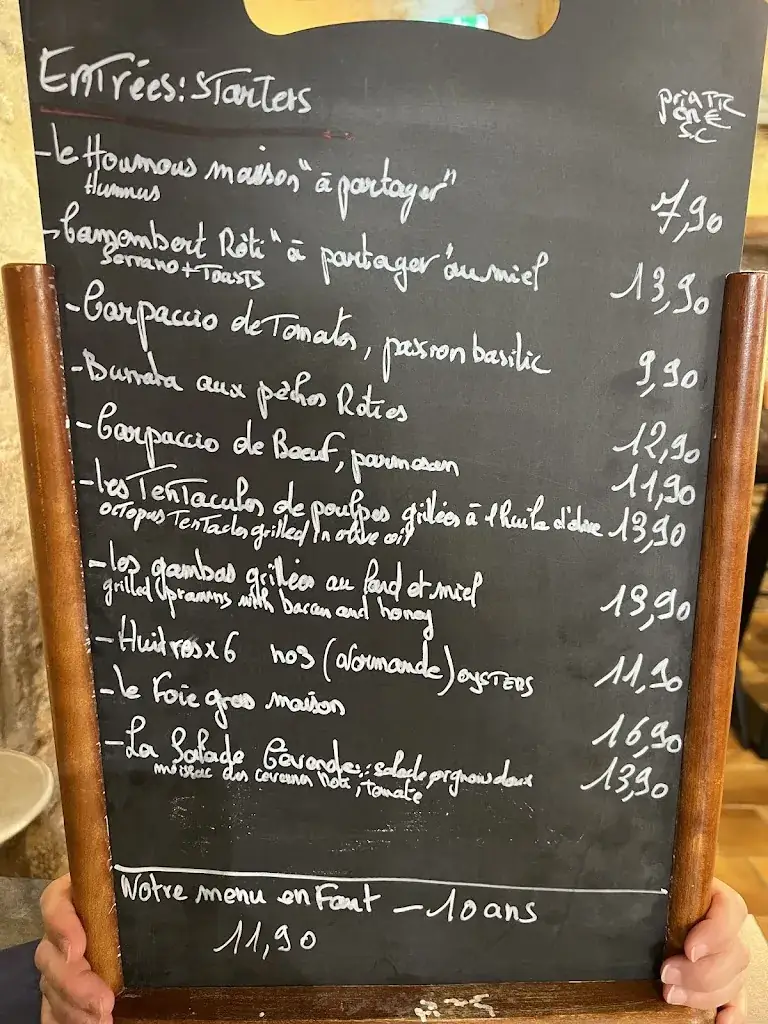 Entrées: Starters
prix TTC
en €
S.C
- le Houmous maison "à partager" 7,90
Hummus
- Camembert Rôti "à partager" au miel 13,90
Serrano + Toasts
- Carpaccio de Tomates, passion basilic 9,90
- Burrata aux pêches Roties 12,90
- Carpaccio de Boeuf, parmesan 11,90
- les Tentacules de poulpes grillées à l'huile d'olive 13,90
octopus Tentacles grilled in olive oil
- les gambas grillées au lard et miel 13,90
grilled prawns with bacon and honey
- Huitres x 6 no3 (Normande) OYSTERS 11,90
- le Foie gras maison 16,90
- La Salade Cévenole: salade, oignons doux 13,90
des cevennes Roti, Tomate
Notre menu enfant - 10 ans
11,90